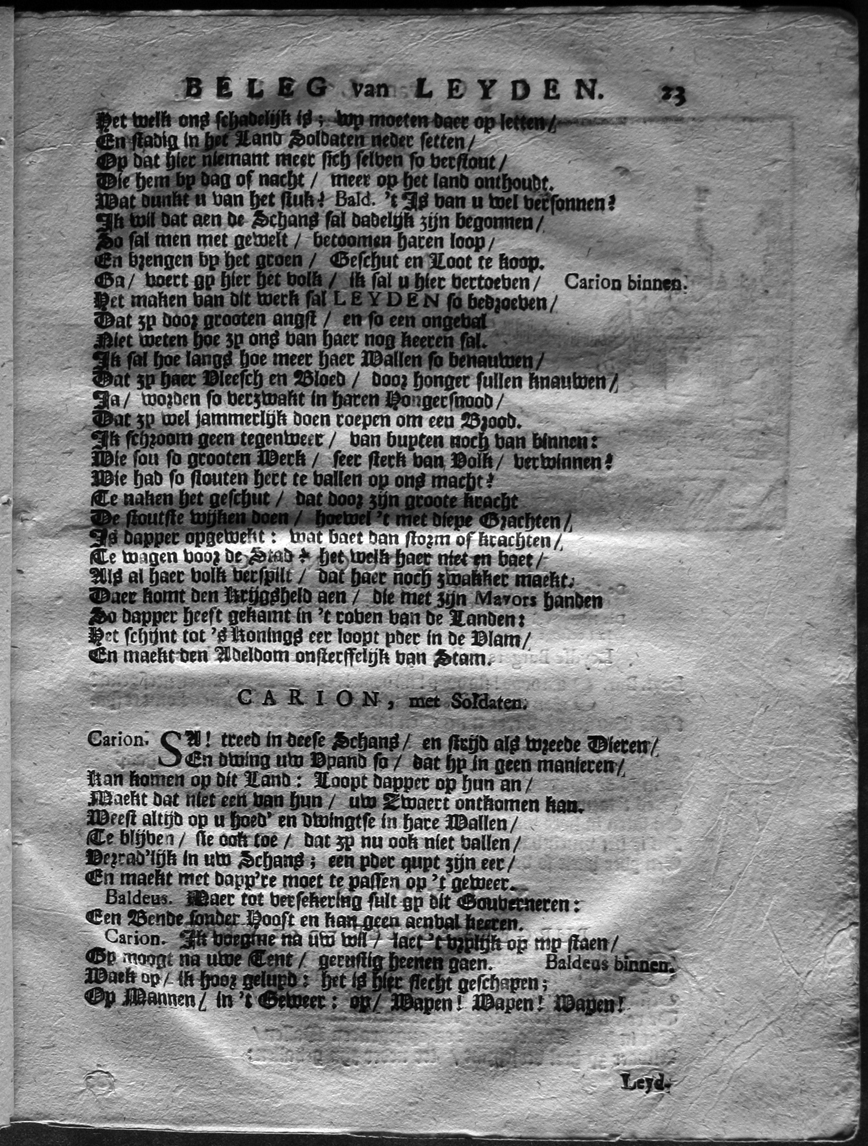 BELEG van LEYDEN. 23
Het welk ons schadelijk is; wy moeten daer op letten/
En stadig in het Land Soldaten neder setten/
Op dat hier niemant meer sich selven so verstout/
Die hem by dag of nacht/ meer op het land onthoudt.
Wat dunkt u van het stuk? Bald. 't Is van u wel versonnen?
Ik wil dat aen de Schans sal dadelijk zijn begonnen/
So sal men met gewelt/ betoomen haren loop/
En brengen by het groen/ Geschut en Loot te koop.
Ga/ voert gy hier het volk/ ik sal u hier vertoeven/ Carion binnen.
Het maken van dit werk sal LEYDEN so bedroeven/
Dat zy door grooten angst/ en so een ongeval
Niet weten hoe zy ons van haer nog keeren sal.
Ik sal hoe langs hoe meer haer Wallen so benauwen/
Dat zy haer Vleesch en Bloed/ door honger sullen knauwen/
Ja/ worden so verzwakt in haren Hongersnood/
Dat zy wel jammerlijk doen roepen om een Brood.
Ik schroom geen tegenweer/ van buyten noch van binnen:
Wie sou so grooten Werk/ seer sterk van Volk/ verwinnen?
Wie had so stouten hert te vallen op ons macht?
Te naken het geschut/ dat door zijn groote kracht
De stoutste wijken doen/ hoewel 't met diepe Grachten/
Is dapper opgewekt: wat baet dan storm of krachten/
Te wagen voor de Stad? het welk haer niet en baet/
Als al haer volk verspilt/ dat haer noch zwakker maekt.
Daer komt den Krijgsheld aen/ die met zijn Mavors handen
So dapper heeft gekamt in 't roven van de Landen:
Het schijnt tot 's Konings eer loopt yder in de Vlam/
En maekt den Adeldom onsterffelijk van Stam.
CARION, met Soldaten.
Carion. SA! treed in deese Schans/ en strijd als wreede Dieren/
En dwing uw Vyand so/ dat hy in geen manieren/
Kan komen op dit Land: Loopt dapper op hun an/
Maekt dat niet een van hun/ uw Zwaert ontkomen kan.
Weest altijd op u hoed' en dwingtse in hare Wallen/
Te blijven/ sie ook toe/ dat zy nu ook niet vallen/
Verrad'lijk in uw Schans; een yder quyt zijn eer/
En maekt met dapp're moet te passen op 't geweer.
Baldeus. Maer tot versekering sult gy dit Gouverneren:
Een Bende sonder Hooft en kan geen aenval keeren.
Carion. Ik voegme na uw wil/ laet 't vrylijk op my staen/
Gy moogt na uwe Tent/ gerustig heenen gaen. Baldeus binnen.
Waek op/ ik hoor geluyd: het is hier slecht geschapen;
Op Mannen/ in 't Geweer: op/ Wapen! Wapen! Wapen!
Leyd.